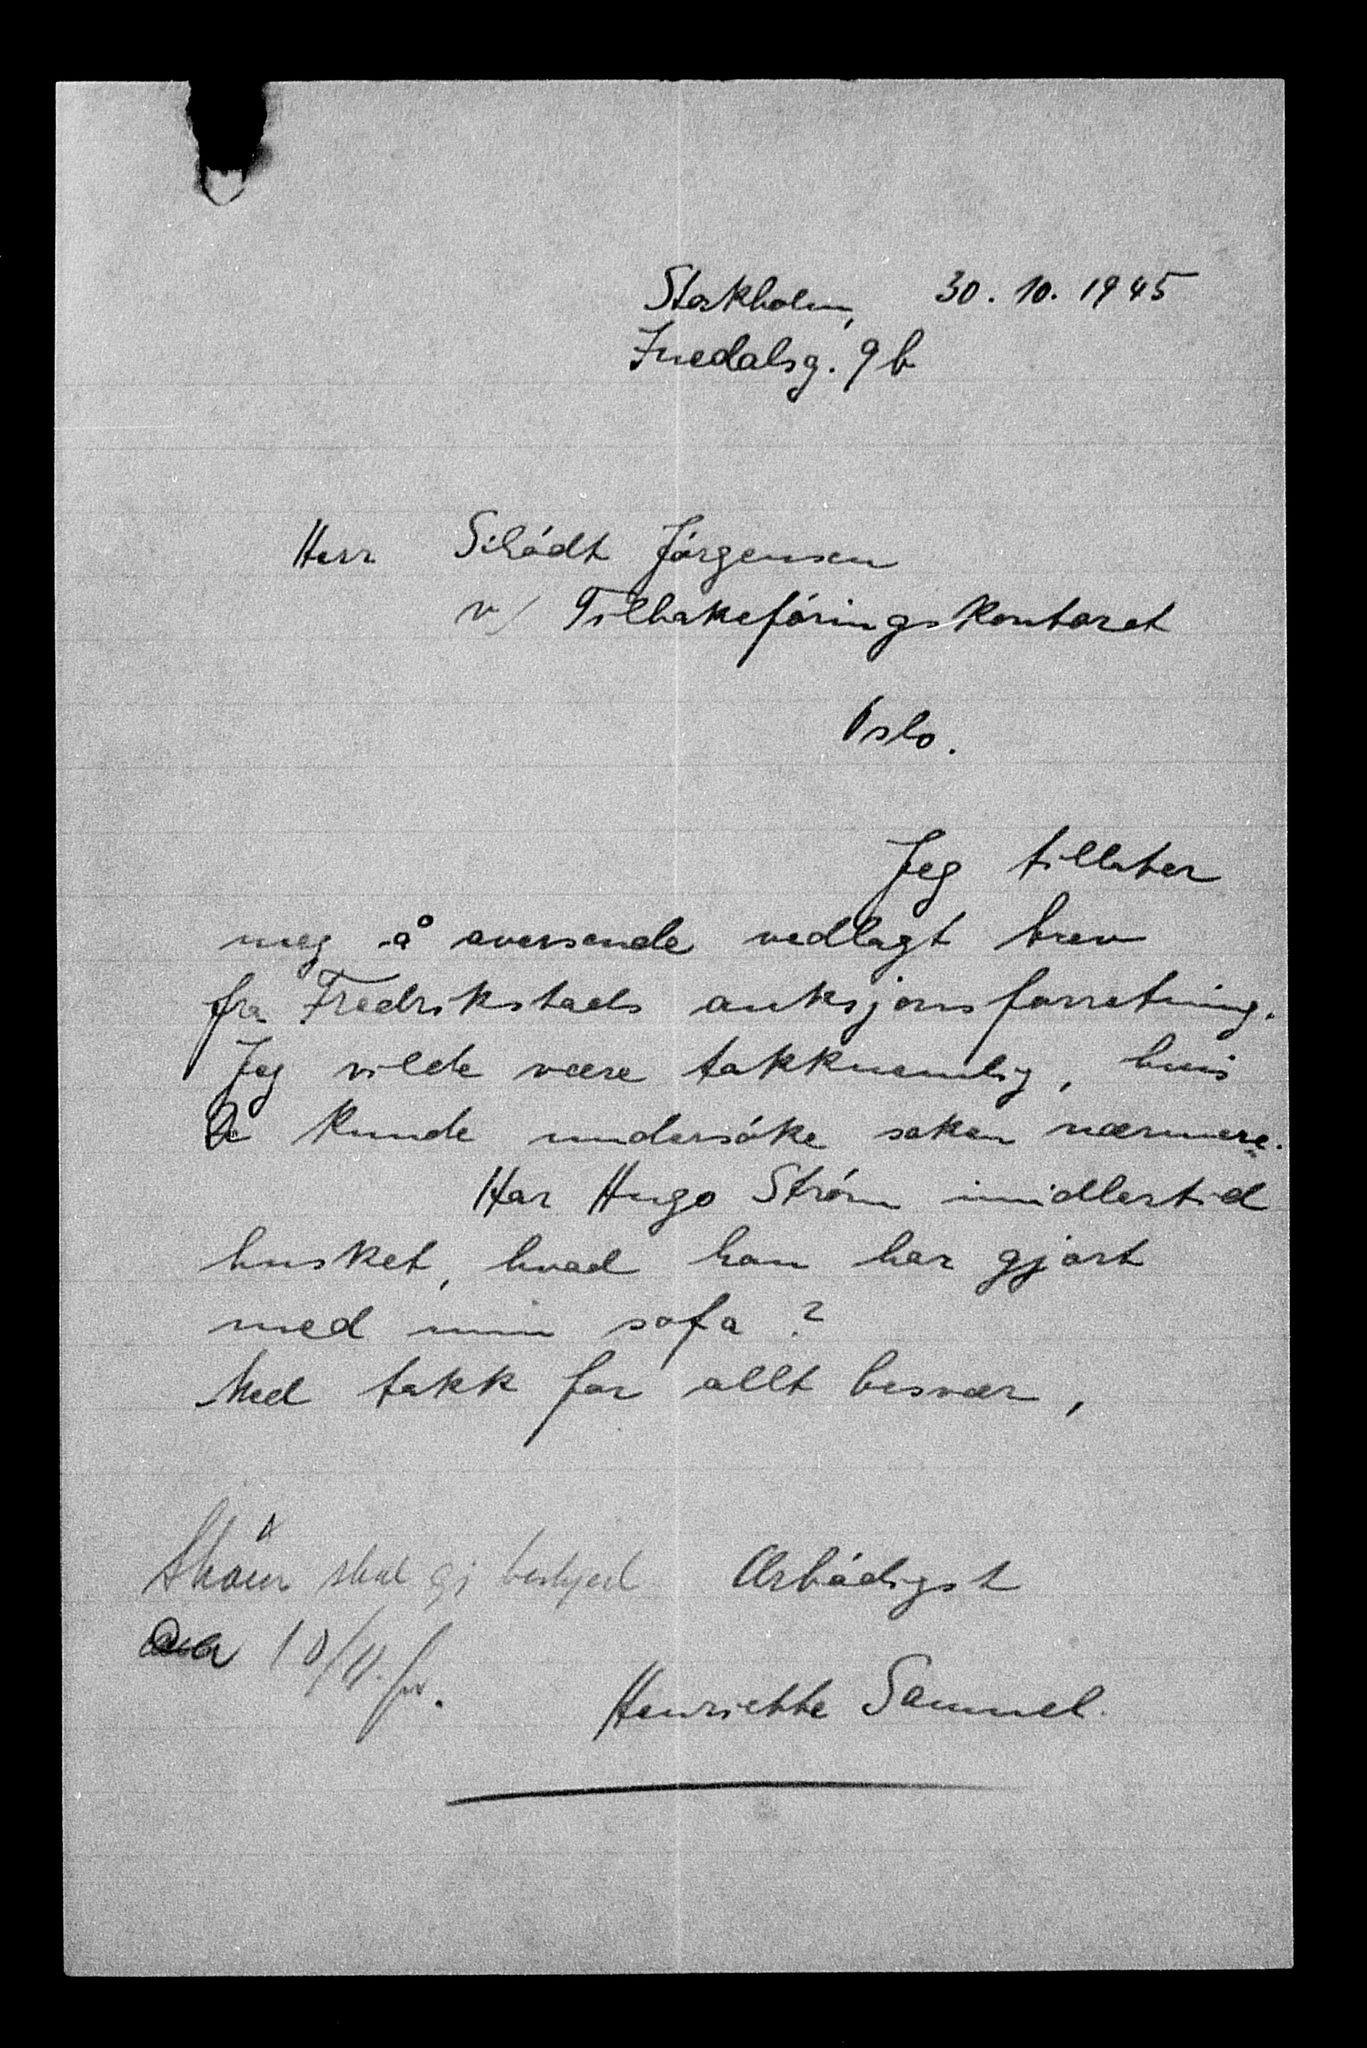 Stockholm, 30. 10. 1945
Inedalsg. 9 b
Herr Schódt Jórgensen
v/ Tilbakefóringskontoret
Oslo.
Jeg tillater
meg å oversende vedlagt brev
fra Fredrikstads auksjonsforretning.
Jeg vilde være takknemlig, hvis
De kunde undersóke saken nærmere.
Har Hugo Stróm imidlertid
husket, hvad han har gjort
med min sofa?
Med takk for allt besvær,
Ærbódigst
Henriette Samuel.
skal gi beskjed
10/11.